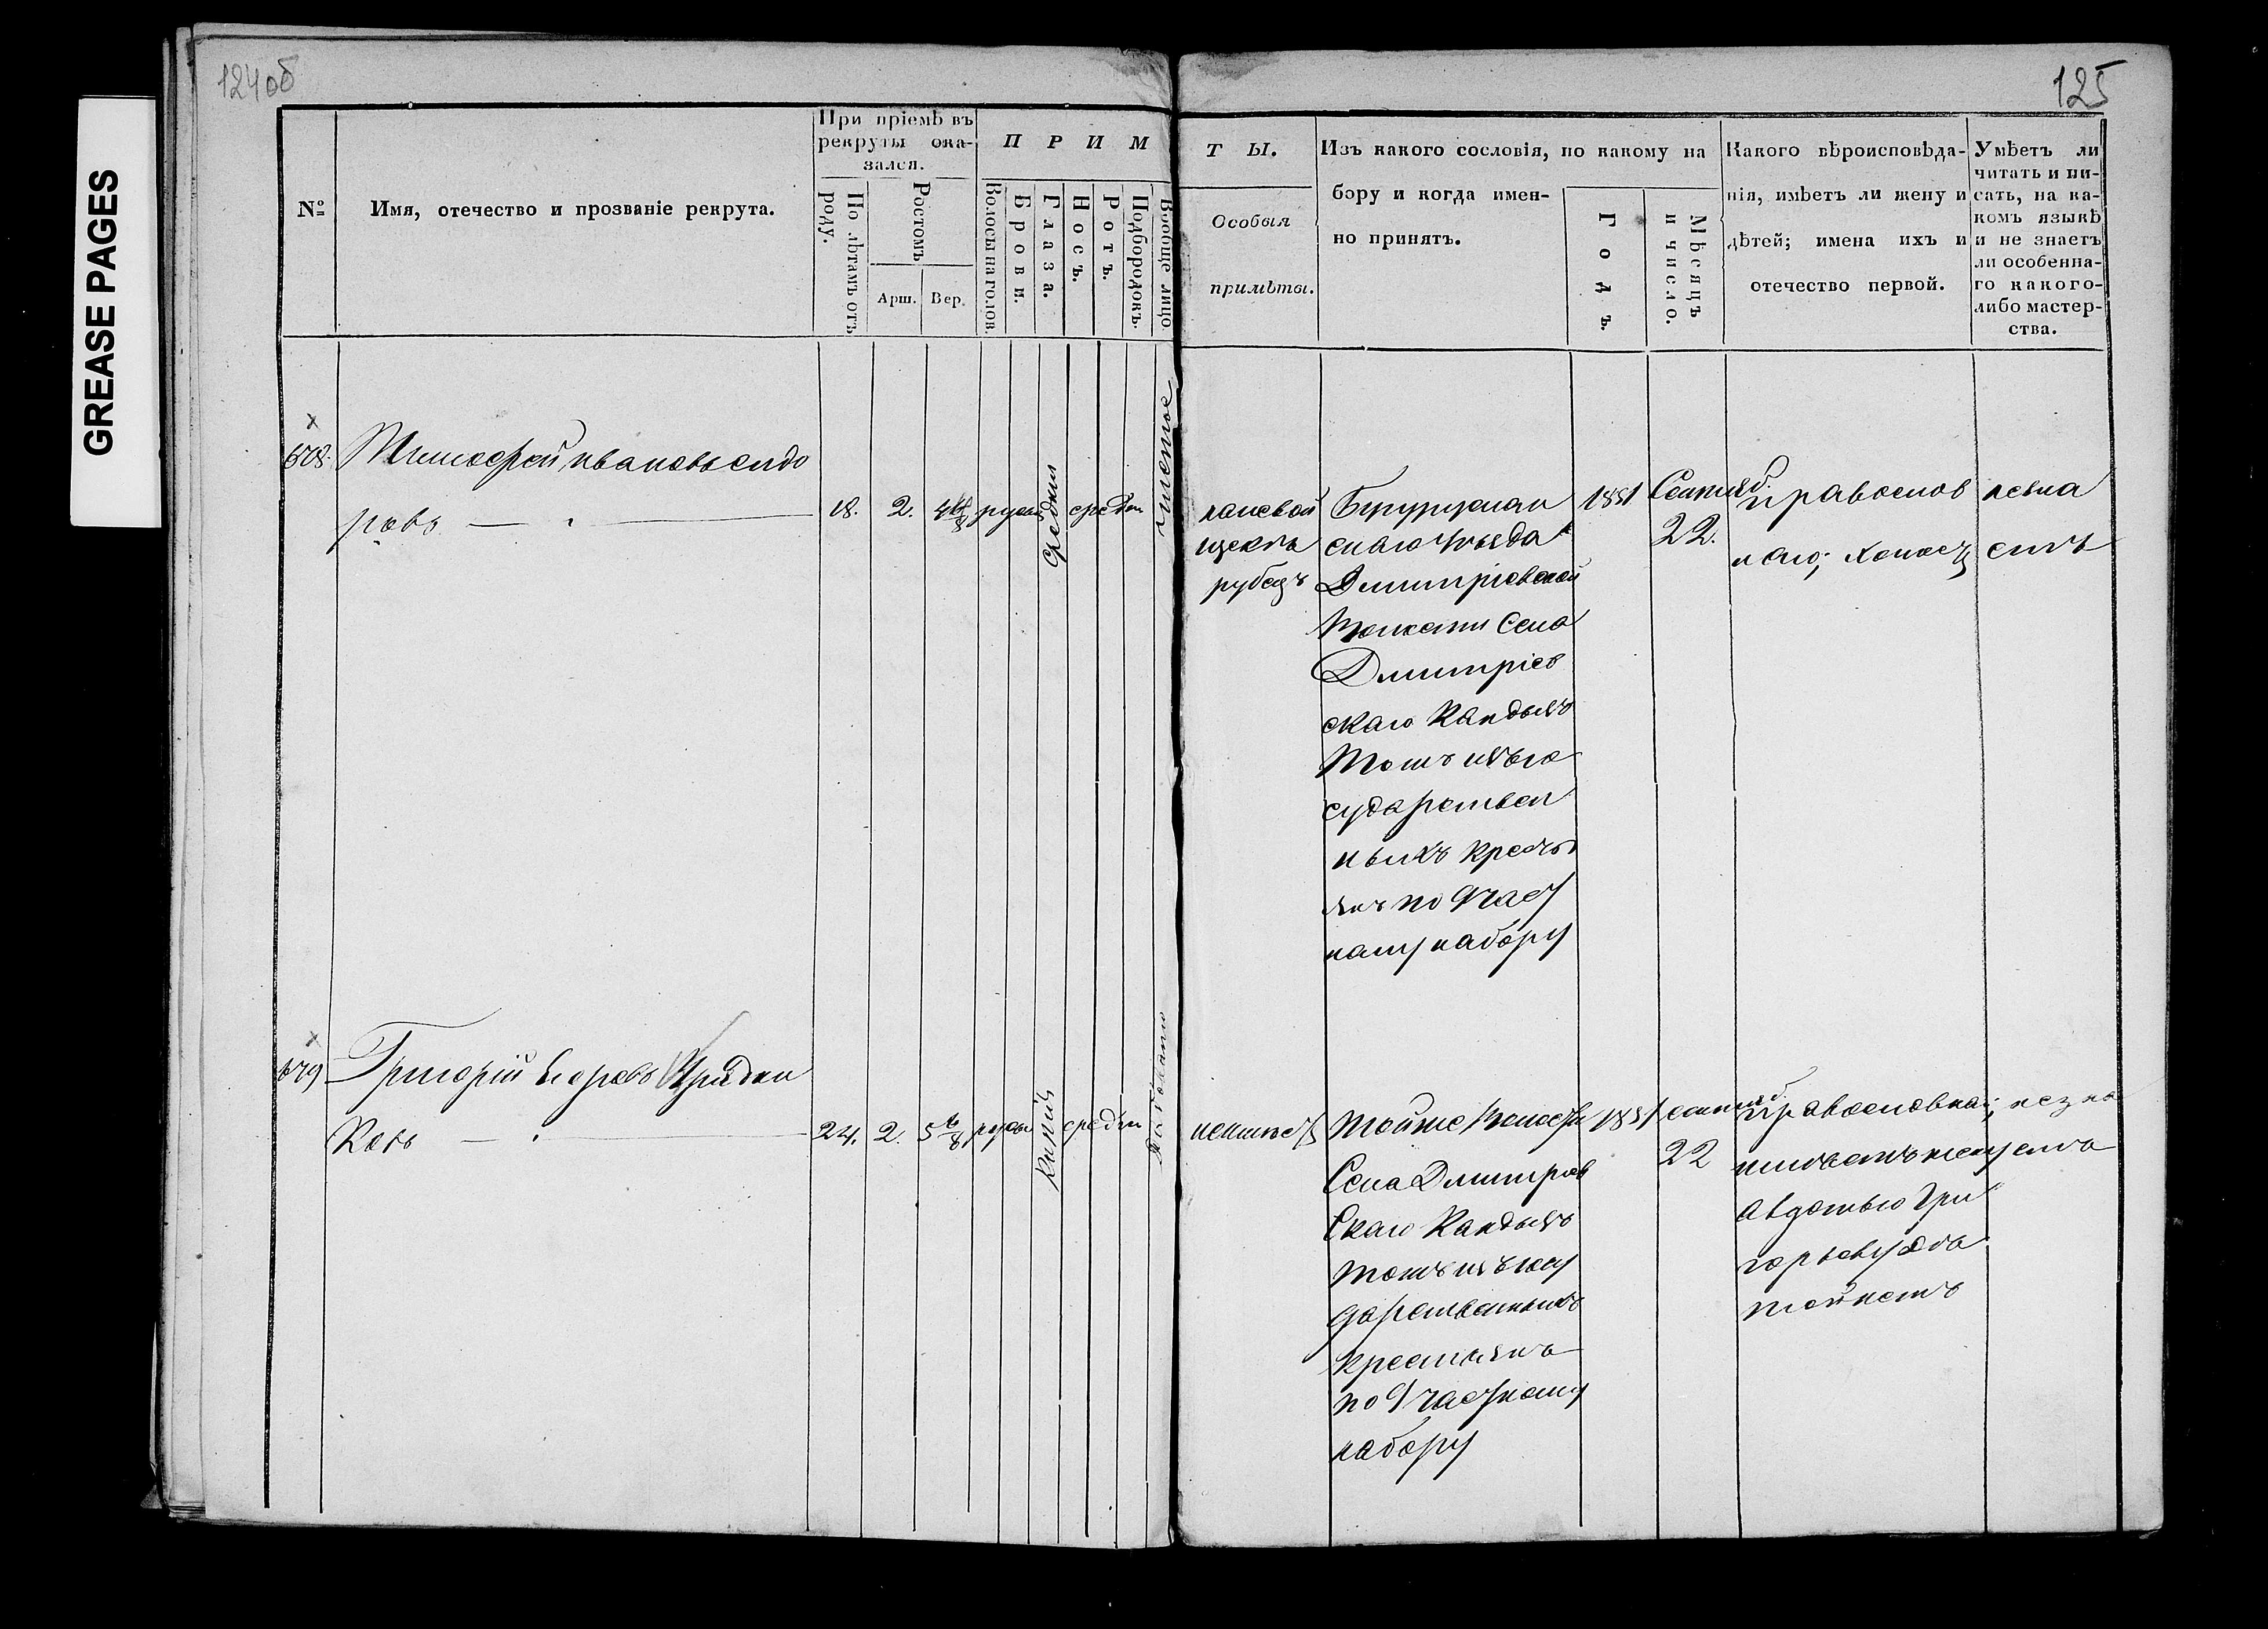 GREASE PAGES
124об
125
№
Имя, отечество и прозваніе рекрута.
При пріемѣ въ
рекруты ока-
зался.
По лѣтамъ отъ
роду.
Ростомъ
Арш.
Вер.
П Р И М
Волосы на голов.
Брови.
Глаза.
Носъ.
Ротъ.
Подбородокъ.
Вообще лицо.
Т Ы.
Особыя
примѣты.
Изъ какого сословія, по какому на
бору и когда имен-
но принятъ.
Годъ.
Мѣсяцъ
и число.
Какого вѣроисповѣда-
нія, имѣетъ ли жену и
дѣтей; имена ихъ и
отечество первой.
Умѣетъ ли
читать и пи-
сать, на ка-
комъ языкѣ
и не знаетъ
ли особенна-
го какого-
либо мастер-
ства.
678.
Тимофей Ивановъ Сидо
ровъ
18.
2.
русые
средніи
чистое
на левой
щекѣ
рубецъ
Бугуруслан
скаго Уѣзда
Дмитріевской
Волости Села
Дмитріев
скаго Кандызъ
Тожъ изъ го
сударствен
ныхъ кресть
янъ по 9 час
ному набору
1851
Сентяб.
22.
Православ
наго; холостъ
679
Григорій Егоровъ Прядки
ковъ
24.
2.
5 6/8
русы
каріи
средни
неимѣетъ
Тойже Волости
Села Дмитров
Скаго Кандызъ
тожъ изъ госу
дарственныхъ
крестьянъ
по 9 частному
набору
1851
сентяб
22
Православнаго;
имѣетъ жену
Авдотью Гри
горьеву дѣ
тей нетъ